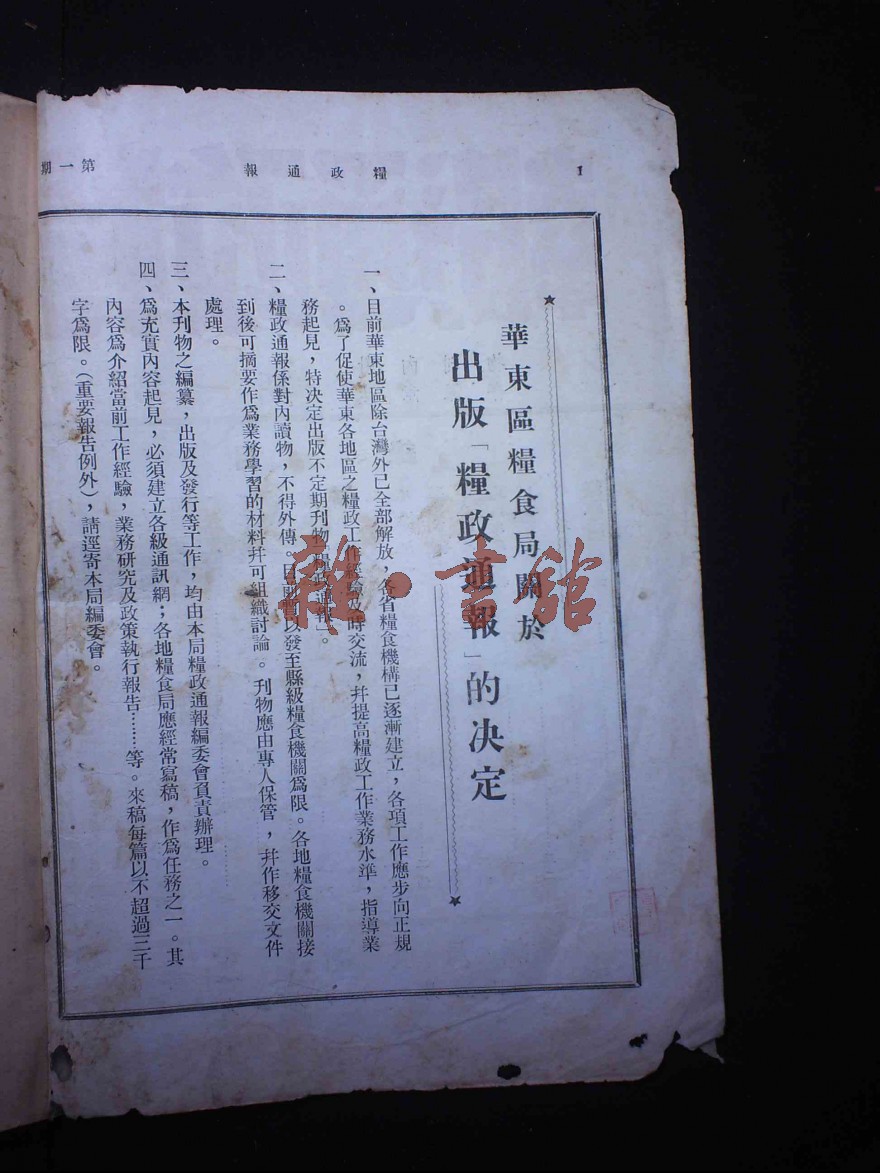 第一期
糧政通報
1
華東區糧食局關於
出版「糧政通報」的决定
一、目前華東地區除台灣外已全部解放，各省糧食機構已逐漸建立，各項工作應步向正規
。爲了促使華東各地區之糧政工作經驗及時交流，幷提高糧政工作業務水準，指導業
務起見，特决定出版不定期刊物「糧政通報」。
二、糧政通報係對內讀物，不得外傳。目前暫以發至縣級糧食機關爲限。各地糧食機關接
到後可摘要作爲業務學習的材料幷可組織討論。刊物應由專人保管，幷作移交文件
處理。
三、本刊物之編纂，出版及發行等工作，均由本局糧政通報編委會負責辦理。
四、爲充實內容起見，必須建立各級通訊網；各地糧食局應經常寫稿，作爲任務之一。其
內容爲介紹當前工作經驗，業務研究及政策執行報告……等。來稿每篇以不超過三千
字爲限。（重要報告例外），請逕寄本局編委會。
雜·書館